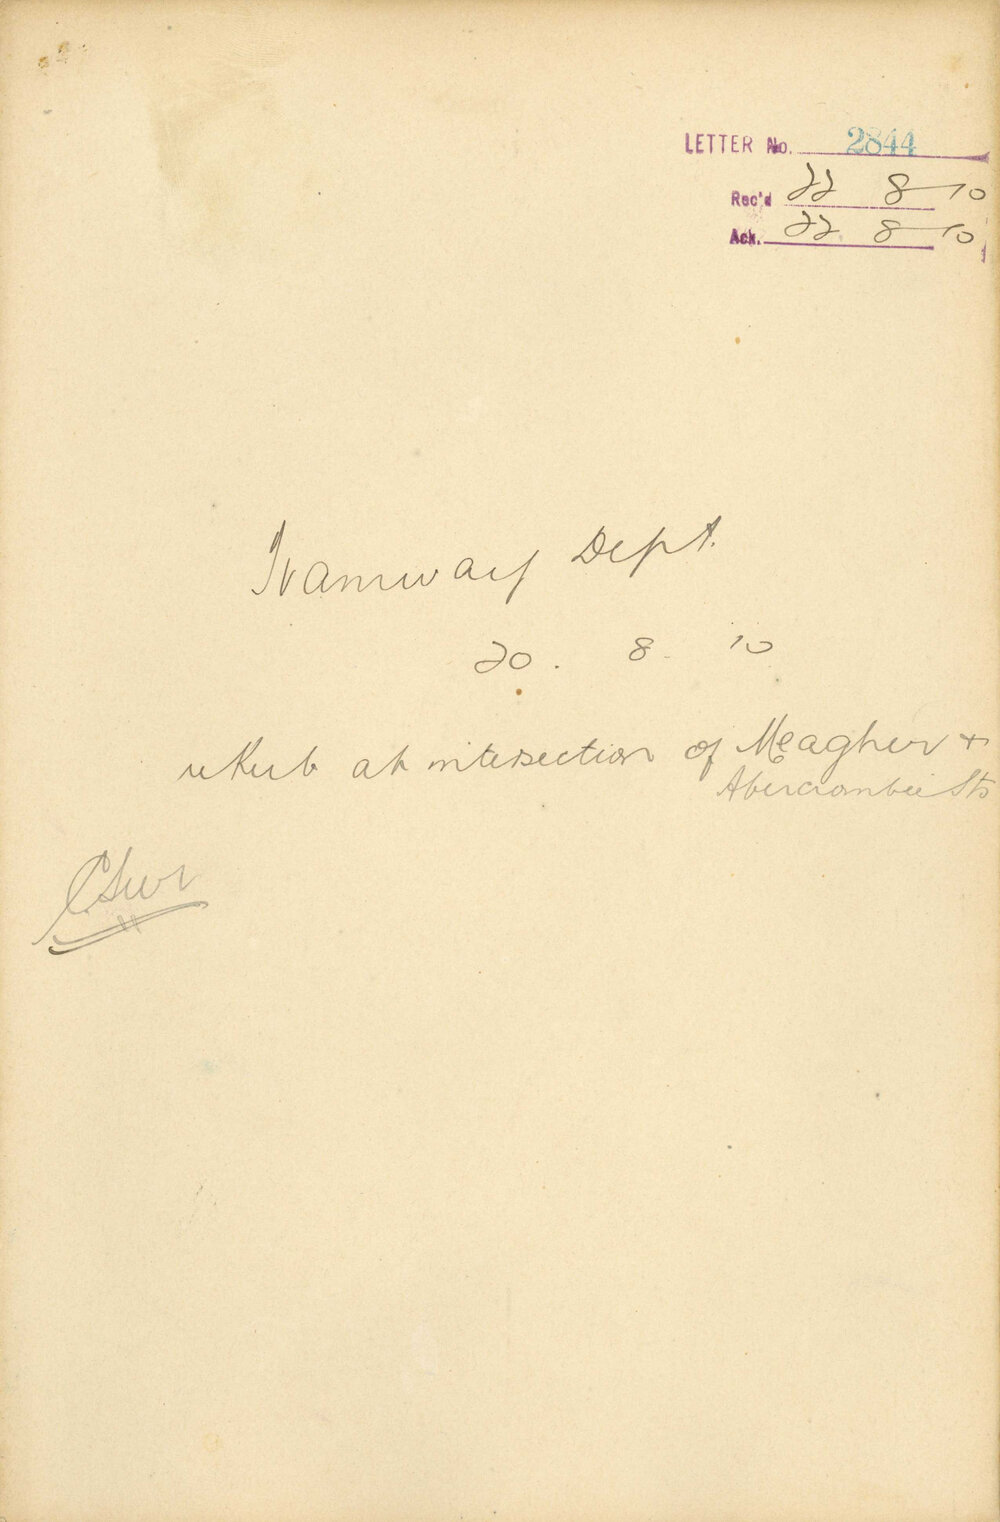 LETTER No. 2844
Rec'd 22 8 10
Ack. 22 8 10
Tramway Dept.
20. 8. 10
re Kerb at intersection of Meagher +
Abercrombie Sts